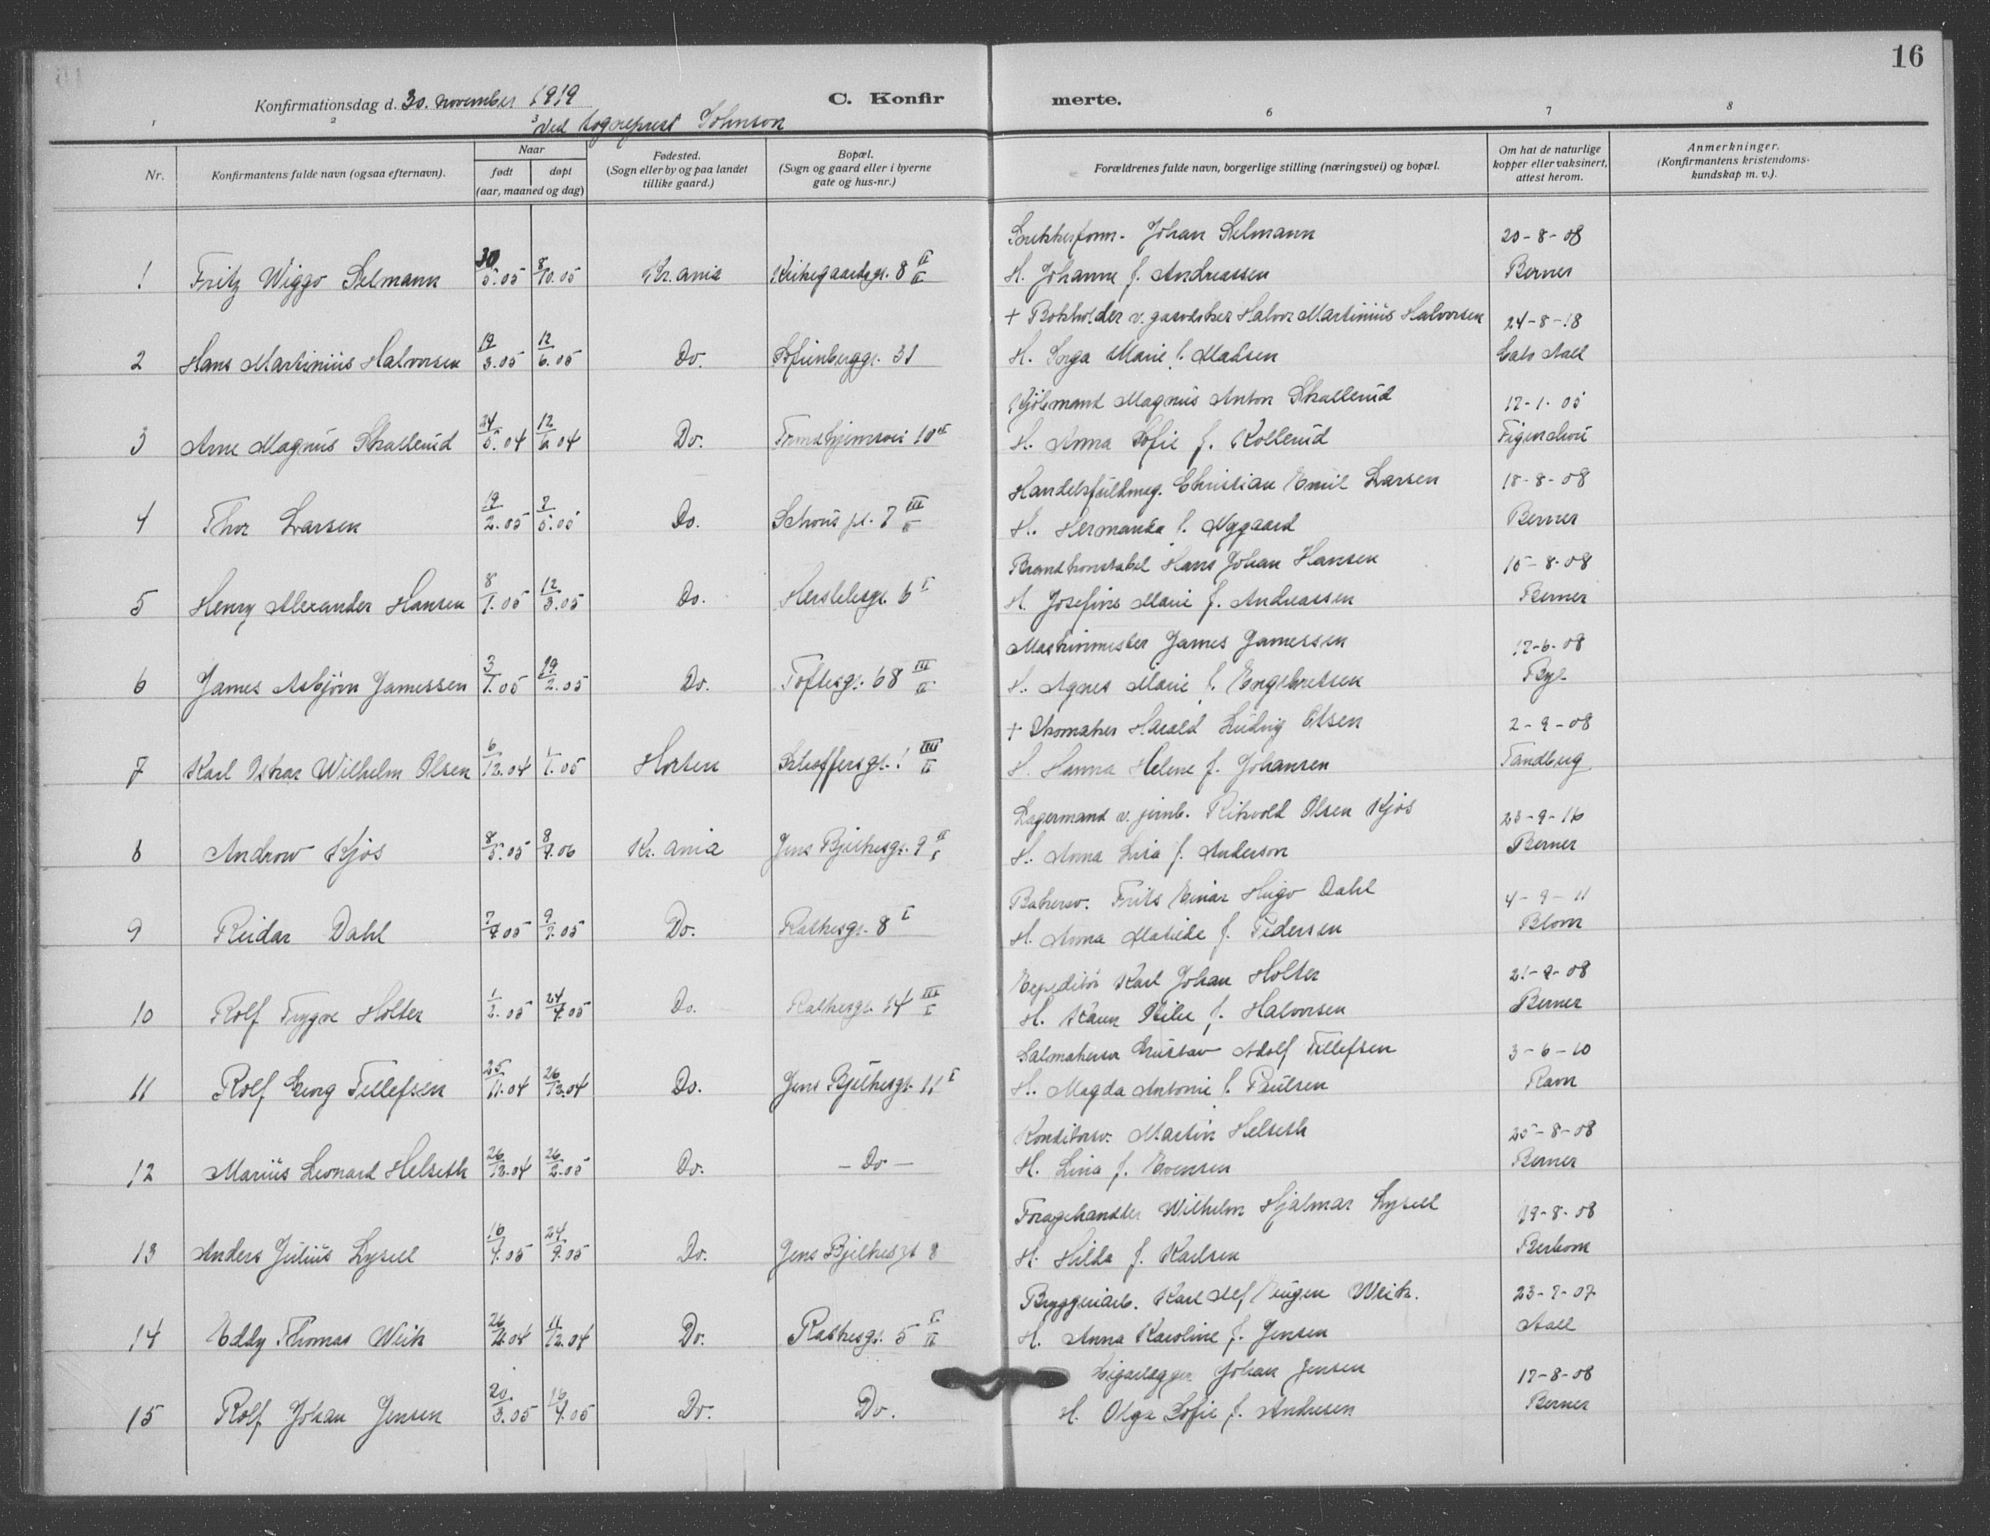 16
Konfirmationsdag d. 30. november 1919
C. Konfirmerte.
Ved sogneprest Johnson
1 2 3 6 7 8
Nr.
Konfirmantens fulde navn (ogsaa efternavn).
Naar
født døpt
(aar, maaned og dag)
Fødested.
(Sogn eller by og paa landet
tillike gaard.)
Bopæl.
(Sogn og gaard eller i byerne
gate og hus-nr.)
Forældrenes fulde navn, borgerlige stilling (næringsvei) og bopæl.
Om hat de naturlige
kopper eller vaksinert,
attest herom.
Anmerkninger.
(Konfirmantens kristendoms-
kundskap m. v.).
Snekkerform. Johan Selmann 20-8-08
1 Fritz Wiggo Selmann 30/5.05 8/10.05 Kr.ania Kirkegaardsgt. 8 II/II H. Johanne f. Andreassen Berner
+ Bokholder v. gasverket Halvor Martinius Halvorsen 24-8-18
2 Hans Martinius Halvorsen 19/3.05 12/6.05 Do. Sofienberggt. 31 H. Inga Marie f. Madsen Cato Aall
Kjølemand Magnus Anton Skallerud 12-1-05
3 Arne Magnus Skallerud 24/5.04 12/6.04 Do. Trondhjemsvei 10 H. Anna Sofie f. Kollerud Figenschou
Handelsfuldmæg. Christian Emil Larsen 18-8-08
4 Thor Larsen 19/2.05 7/5.05 Do. Schous pl. 7 III H. Hermanda f. Nygaard Berner
Brandkonstabel Hans Johan Hansen 15-8-08
5 Henry Alexander Hansen 8/1.05 12/3.05 Do. Herslebsgt. 6 I H. Josefine Marie f. Andreassen Berner
Maskinmester James Jamessen 12-6-08
6 James Asbjørn Jamessen 3/1.05 19/2.05 Do. Toftesgt. 68 III/II H. Agnes Marie f. Engebretsen
+ Skomaker Harald Ludvig Olsen 2-9-08
7 Karl Oskar Wilhelm Olsen 6/12.04 1/1.05 Horten Schæffersgt. 1 III/II H. Hanna Helene f. Johansen Tandberg
Lagermand v. jernb. Rikvold Olsen Kjøs 23-9-16
8 Andrew Kjøs 8/5.05 8/7.06 Kr.ania Jens Bjelkesgt. 9 H. Anna Lisa f. Anderson Berner
Bakersv. Frits Einar Hugo Dahl 4-9-11
9 Reidar Dahl 7/7.05 9/7.05 Do. Rathkesgt. 8 I H. Anna Matilde f. Pedersen Blom
Expeditør Karl Johan Holter 21-9-08
10 Rolf Trygve Holter 1/2.05 24/7.05 Do. Rathkesgt. 14 III/I H. Karen f. Halvorsen Berner
Salmakersv. Gustav Adolf Tellefsen 3-6-10
11 Rolf Georg Tellefsen 25/11.04 26/12.04 Do. Jens Bjelkesgt. 11 I H. Magda Antonie f. Paulsen Ravn
Konditorsv. Martin Helseth 25-8-08
12 Marius Leonard Helseth 26/12.04 26/2.05 Do. – Do – H. Lina f. Evensen Berner
Foragehandler Wilhelm Hjalmar Lysell 19-8-08
13 Anders Julius Lysell 16/7.05 24/9.05 Do. Jens Bjelkesgt 8 H. Hilda f. Karlsen
Bryggeriarb. Karl Alf Eugen Weik. 23-7-07
14 Eddy Thomas Weik 26/11.04 11/12.04 Do. Rathkesgt. 5 I/II H. Anna Karoline f. Jensen Aall
Johan Jensen 17-8-08
15 Rolf Johan Jensen 20/3.05 16/7.05 Do. Do. H. Olga Sofie f. Andresen Berner